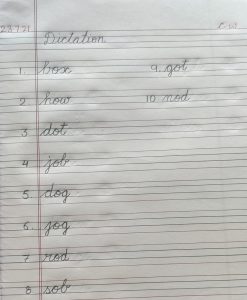 23.7.21 C.W
Dictation
1. box 9. got
2. how 10. nod
3 dot
4 job
5. dog
6. jog
7 rod
8 sob